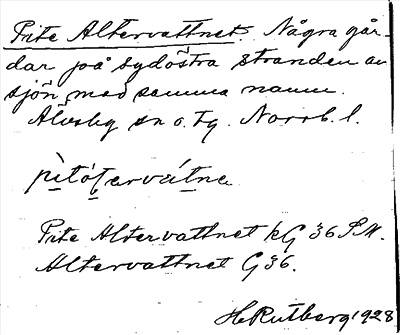 Pite Altervattnet. Några går-
dar på sydöstra stranden av
sjön med samma namn.
Älvsby sn o. tg. Norrb. l.
pìtó̱ṯervátne
Pite Altervattnet kG 36 S.M.
Altervattnet G 36.
H Rutberg 1928